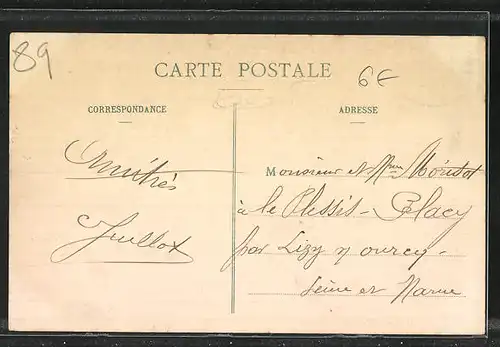 89
CARTE POSTALE
6€
CORRESPONDANCE
ADRESSE
Amitiés
Juillot
Monsieur et Mme Moridot
à le Plessis-Placy
par Lizy s/ ourcq-
Seine et Marne